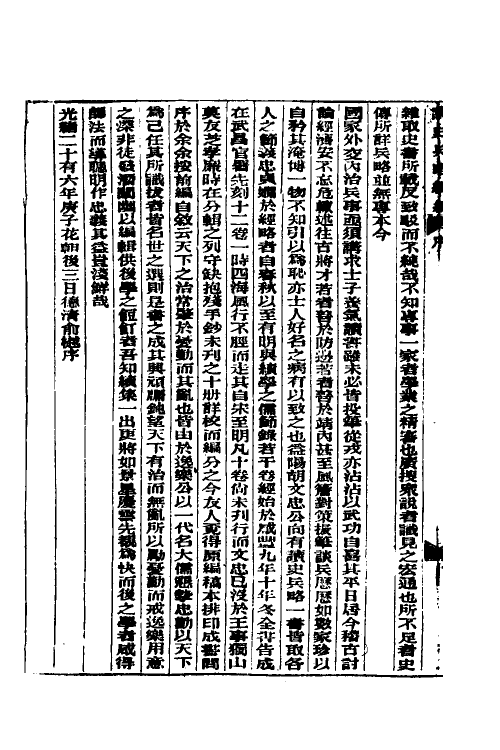 雜取史書所載反致駁而不純哉不知專事一家者學業之精審也廣搜衆說者識見之宏通也所不足者史
傳所詳兵略並無專本今
國家外空內治兵事亟須講求士子養氣讀書雖未必皆投筆從戎亦沾沾以武功自喜其平日居今稽古討
論經濟安不忘危歷述往古將才若者善於防邊若者善於靖內甚至風簷對策振筆談兵歷歷如數家珍以
自矜其淹博一物不知引以爲恥亦士人好名之病有以致之也益陽胡文忠公向有讀史兵略一書皆取各
人之節義忠與嫺於經略者自春秋以至有明與績學之儒節錄若干卷經始於咸豐九年十年冬全書告成
在武昌官廨先刻十二卷一時四海風行不脛而走其自宋至明凡十卷尚未刊行而文忠已沒於王事獨山
莫友芝孝廉時在分輯之列守缺抱殘手鈔未刊之十册詳校而編分之今友人覓得原編稿本排印成書問
序於余余按前編自敘云天下之治常肇於憂勤而其亂也皆由於逸樂公以一代名大儒懇摯忠勤以天下
爲己任其所識拔者皆名世之選則是書之成其興頑廉鈍望天下有治而無亂所以勵憂勤而戒逸樂用意
之深非徒發潛闡幽以編輯供後學之餖飣者吾知續集一出更將如景星慶雲先覩爲快而後之學者咸得
師法而導聰明作忠義其益豈淺鮮哉
光緒二十有六年庚子花朝後三日德清俞樾序